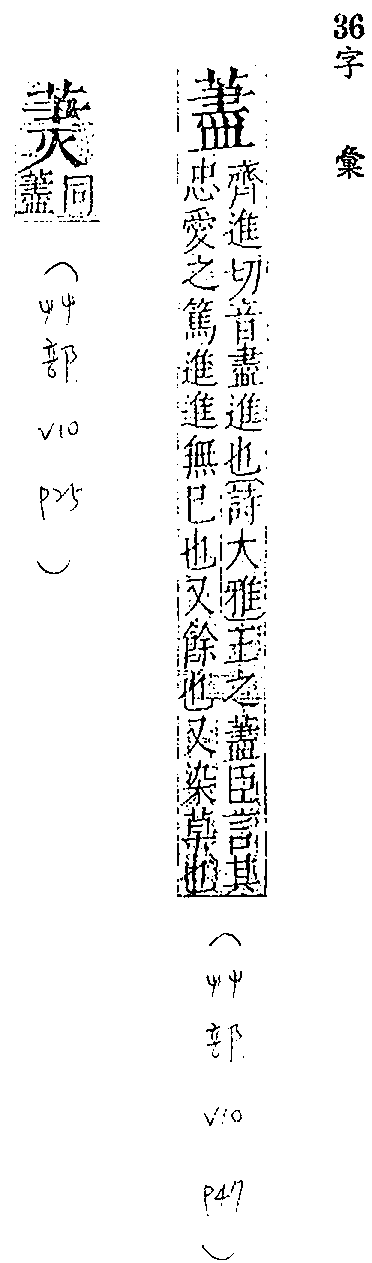 36
字彙
藎
齊進切音盡進也詩大雅王之藎臣言其
忠愛之篤進進無已也又餘也又染草也
(艸部 V10 P47)
同
藎
(艸部 V10 P25)